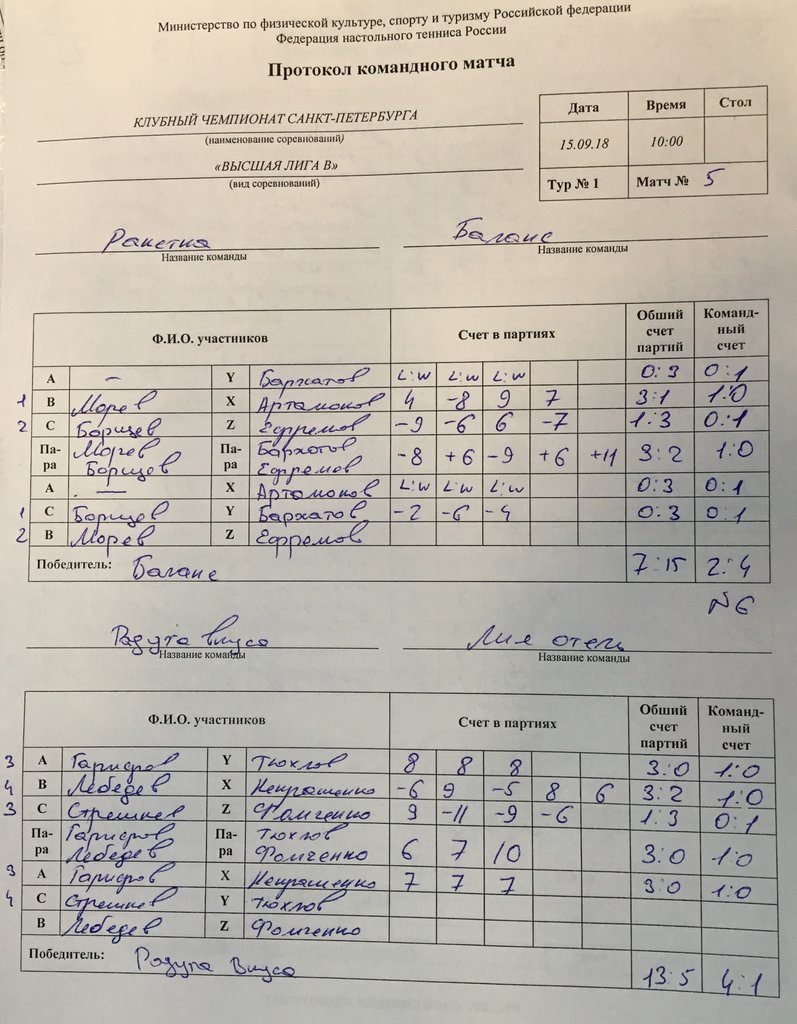 Министерство по физической культуре, спорту и туризму Российской федерации
Федерация настольного тенниса России
Протокол командного матча
КЛУБНЫЙ ЧЕМПИОНАТ САНКТ-ПЕТЕРБУРГА
(наименование соревнований)
«ВЫСШАЯ ЛИГА В»
(вид соревнований)
Дата Время Стол
15.09.18 10:00
Тур № 1 Матч № 5
Ракетка Баланс
Название команды Название команды
Ф.И.О. участников Счет в партиях Обший счет партий Команд-ный счет
А — Y Бархатов L:W L:W L:W 0:3 0:1
1 В Морев X Артамонов 4 -8 9 7 3:1 1:0
2 С Борщев Z Ефремов -9 -6 6 -7 1:3 0:1
Па-ра Морев Борщев Па-ра Бархатов Ефремов -8 +6 -9 +6 +11 3:2 1:0
А — X Артамонов L:W L:W L:W 0:3 0:1
1 С Борщев Y Бархатов -2 -6 -4 0:3 0:1
2 В Морев Z Ефремов
Победитель: Баланс 7:15 2:4
N6
Радуга вкуса Лия отель
Название команды Название команды
Ф.И.О. участников Счет в партиях Обший счет партий Команд-ный счет
3 А Y Тюхлов 8 8 8 3:0 1:0
4 В Лебедев X -6 9 -5 8 6 3:2 1:0
3 С Стрешнев Z Фомченко 9 -11 -9 -6 1:3 0:1
Па-ра Лебедев Па-ра Тюхлов Фомченко 6 7 10 3:0 1:0
3 А X 7 7 7 3:0 1:0
4 С Стрешнев Y Тюхлов
В Лебедев Z Фомченко
Победитель: Радуга Вкуса 13:5 4:1